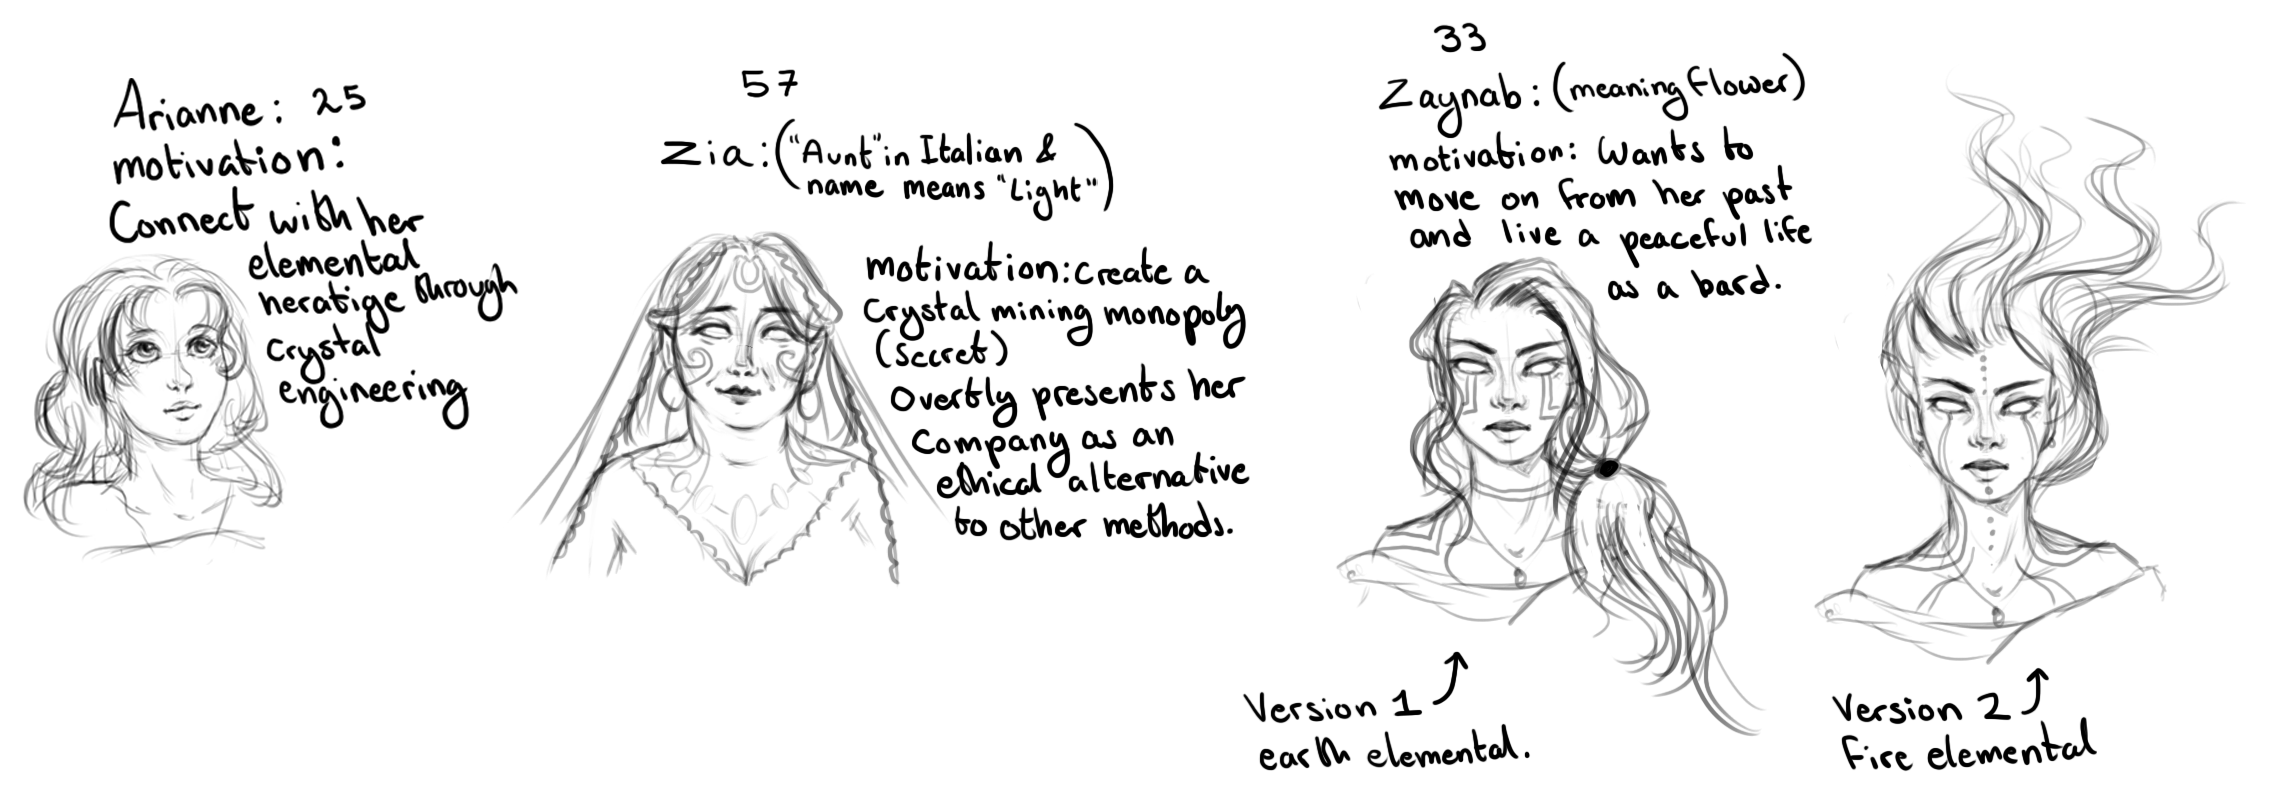 Arianne: 25
motivation:
Connect with her
elemental
heratige through
crystal
engineering
57
Zia: ("Aunt" in Italian &
name means "Light")
motivation: create a
crystal mining monopoly
(secret)
Overtly presents her
company as an
ethical alternative
to other methods.
33
Zaynab: (meaning flower)
motivation: Wants to
move on from her past
and live a peaceful life
as a bard.
Version 1
earth elemental.
Version 2
Fire elemental